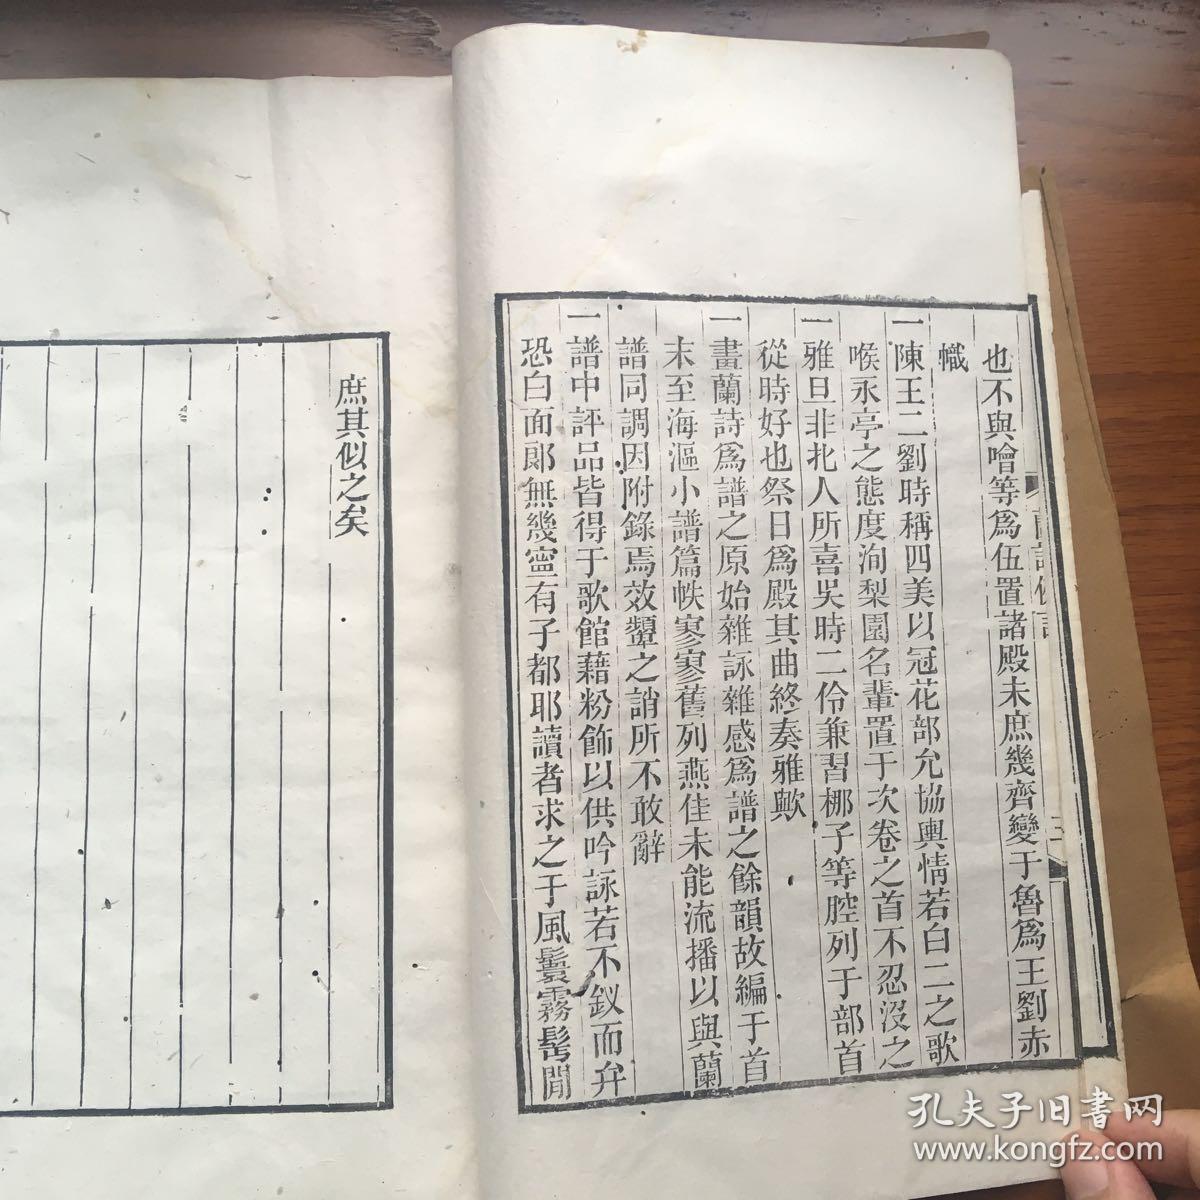 也不與噲等爲伍置諸殿末庶幾齊變于魯爲王劉赤
幟
一陳王二劉時稱四美以冠花部允協輿情若白二之歌
喉永亭之態度洵梨園名輩置于次卷之首不忍沒之
一雅旦非北人所喜吳時二伶兼習梆子等腔列于部首
從時好也祭日爲殿其曲終奏雅歟
一畫蘭詩爲譜之原始雜詠雜感爲譜之餘韻故編于首
末至海漚小譜篇帙寥寥舊列燕佳未能流播以與蘭
譜同調因附錄焉效顰之誚所不敢辭
一譜中評品皆得于歌館藉粉飾以供吟詠若不釵而弁
恐白面郞無幾寧有子都耶讀者求之于風鬟霧髩閒
庶其似之矣
孔夫子旧書网
www.kongfz.com